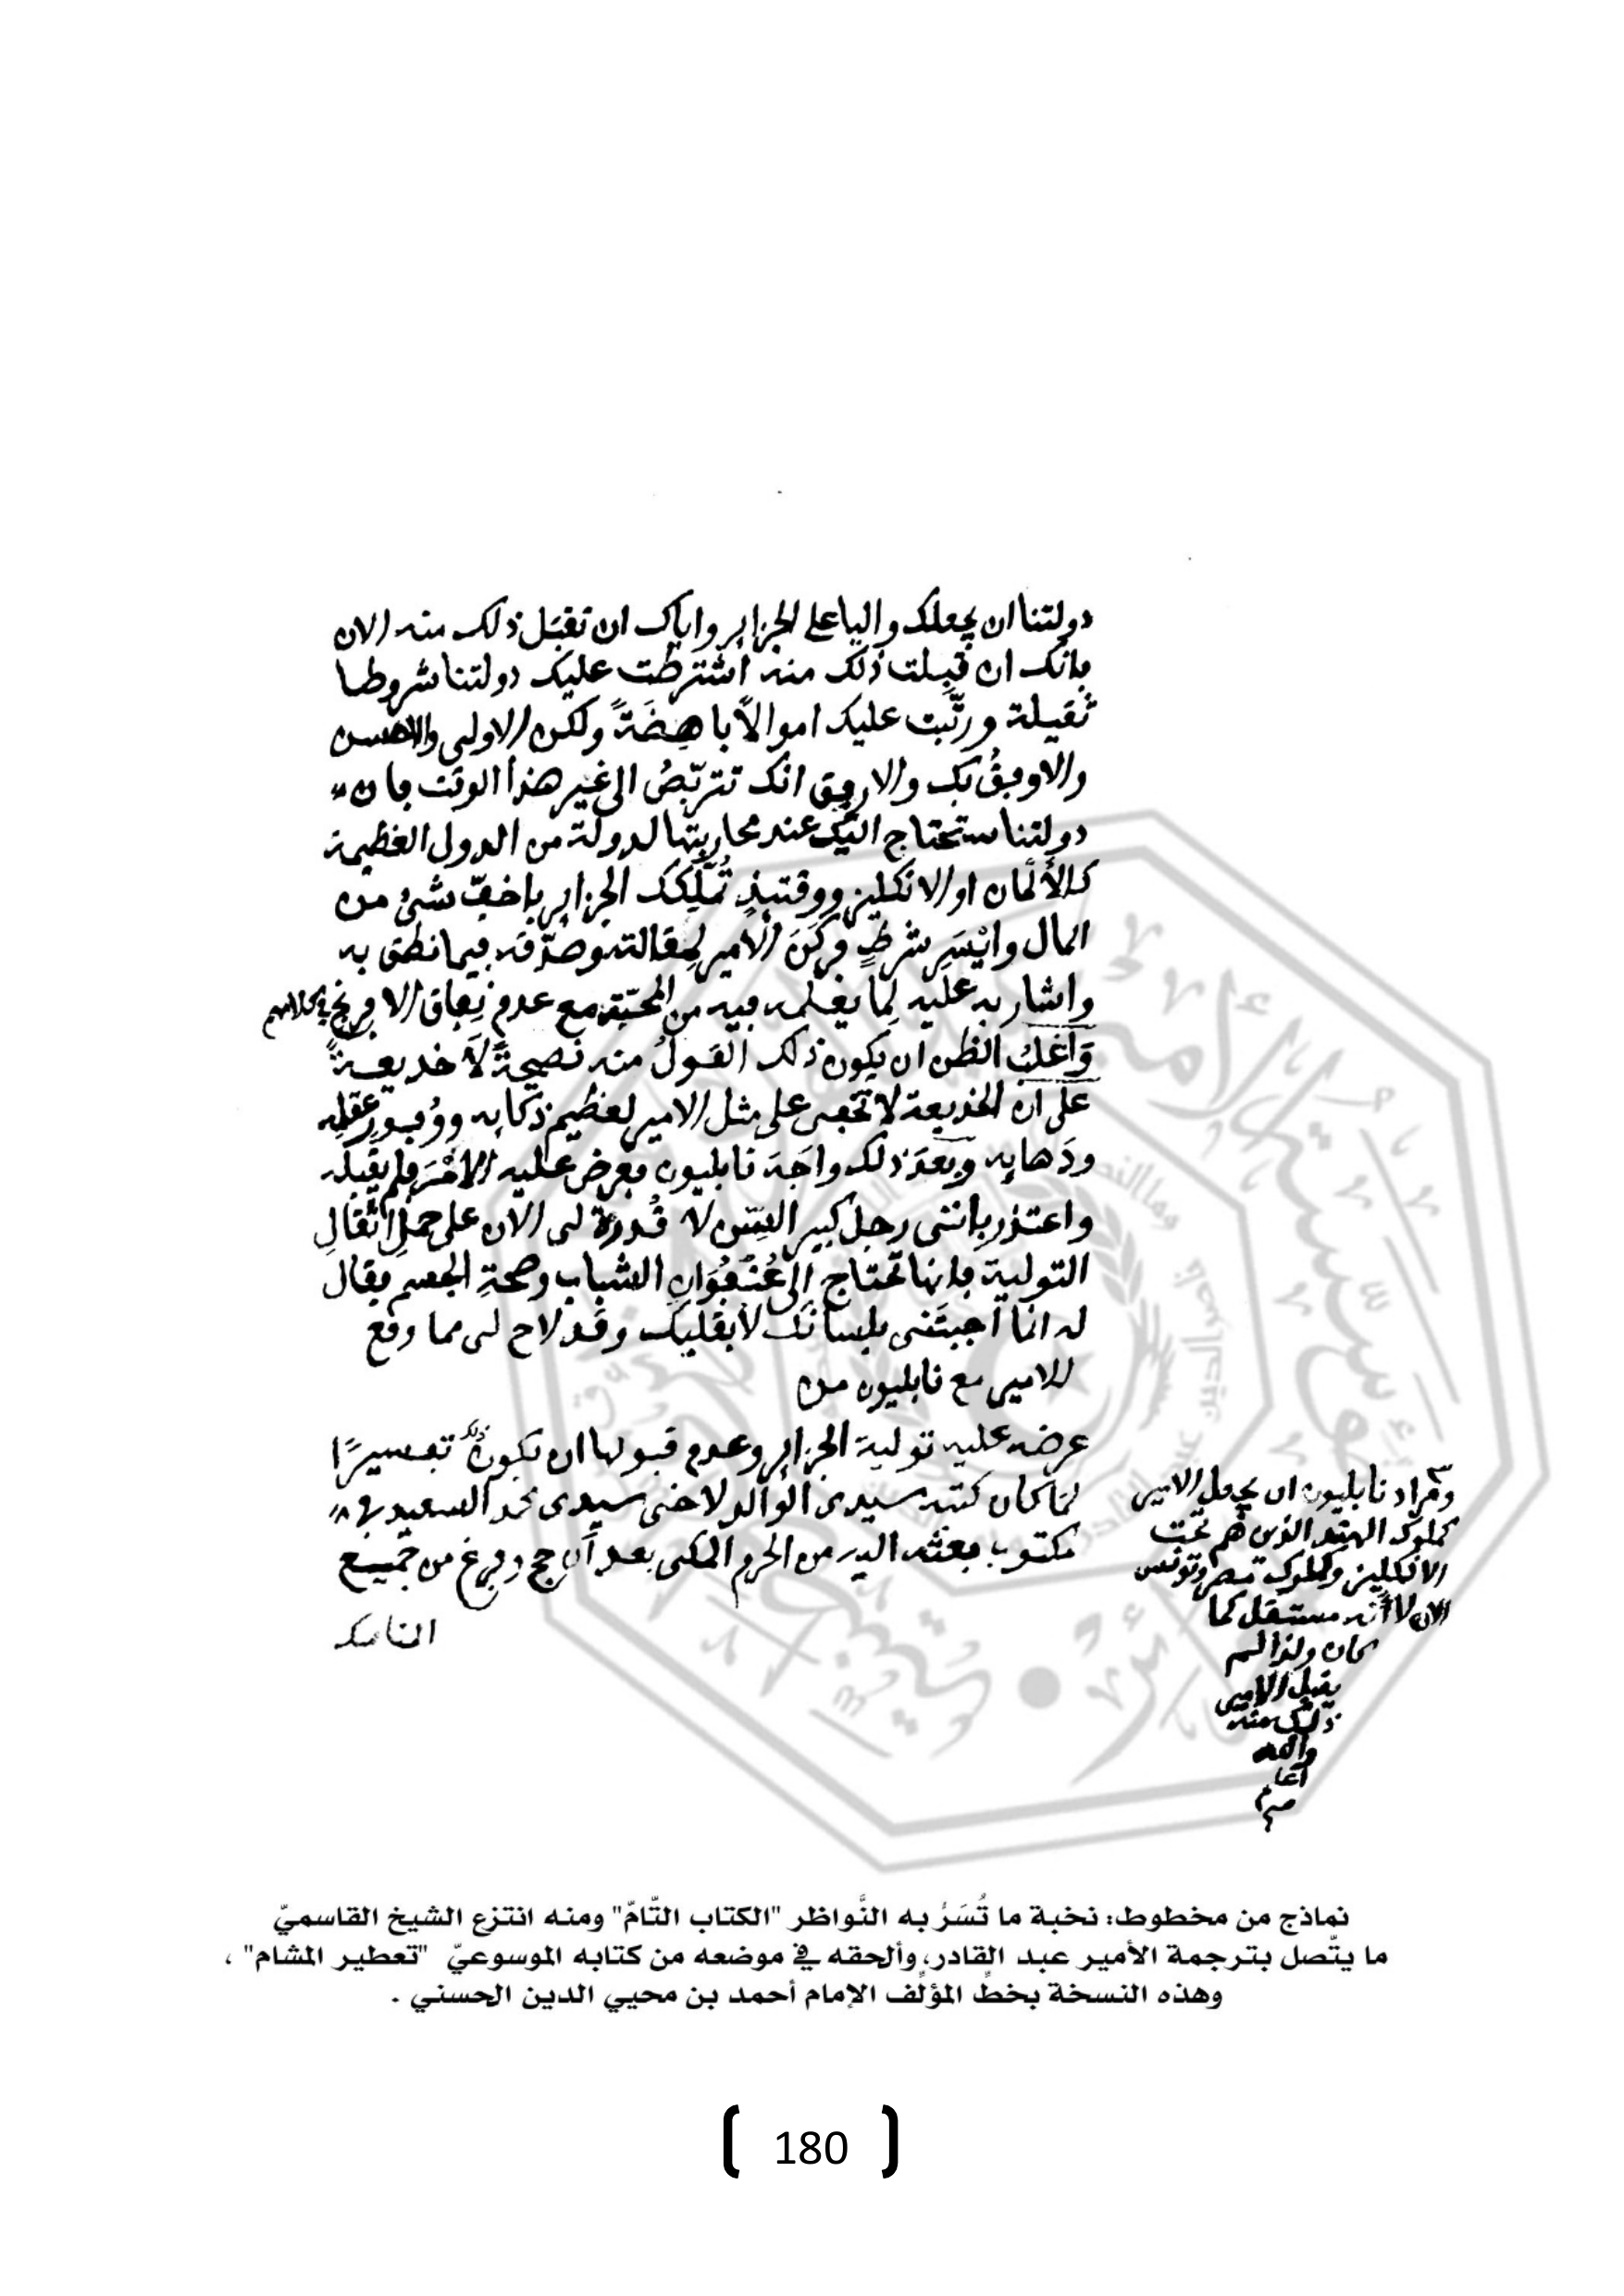 دولتنا ان يجعلك واليا على الجزاير واياك ان تقبَل ذلك منه الان
فانك ان قبِلت ذلك منه اشترطت عليك دولتنا شروطا
ثقيلة ورتّبت عليك اموالاً باهِضَةً ولكن الاولى والاحسن
والاوفقُ بك والارفق انك تتربّصُ الى غير هذا الوقت فان
دولتنا ستحتاج اليك عند محاربتها لدولة من الدول العظيمة
كالألمان او الانكليز ووقتيذٍ تُمَلّكك الجزاير باخفّ شىء من
المال وايْسَرِ شرطٍ فركَنَ الامير لمقالته وصدّقه فيما نطق به
واشار به عليه لِما يعلمه فيه من المحبّة مع عدم نِفاق الافرنج في كلامهم
وَأغلبُ الظن ان يكون ذلك القولُ منه نصيحةً لَا خديعةً
على ان الخديعة لا تخفى على مثل الامير لعظيم ذكايه ووُفورِ عقلِه
ودَهايه وبعدَ ذلك واجَهَ نابليون فعرض عليه الامْرَ فلم يقبَله
واعتذر بانني رجل كبير السّن لا قُدرة لى الان على حمل اثقالِ
التولية فانها تحتاج إلى عُنْفُوَانِ الشباب وصحةِ الجسم فقال
له انما أجبتَني بلسانك لا بقلبك وقد لاح لى مما وقع
للامير مع نابليون من
عرضه عليه تولية الجزاير وعدم قبولها ان يكون ذلك تفسيرًا
لما كان كتبه سيدى الوالد لاخى سيدى محمد السعيد في
مكتوب بعثه اليه من الحرم المكى بعد أن حج وفرغ من جميع
المناسك
ومراد نابليون ان يجعل الامير
كملوك الهند الذين هم تحت
الانكليز وكملوك مصر وتونس
الان لا أنه مستقل كما
كان ولذا لم
يقبل الامير
ذلك منه
والله
أعلم
نماذج من مخطوط: نخبة ما تُسَرُّ به النَّواظر "الكتاب التّامّ" ومنه انتزع الشيخ القاسميّ
ما يتّصل بترجمة الأمير عبد القادر، وألحقه في موضعه من كتابه الموسوعيّ "تعطير المشام" ،
وهذه النسخة بخطّ المؤلّف الإمام أحمد بن محيي الدين الحسني .
[ 180 ]